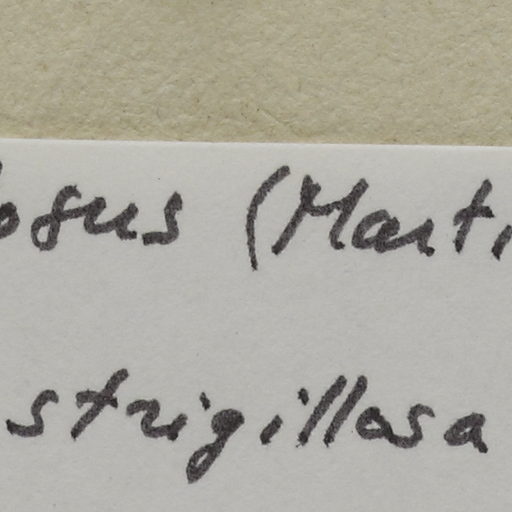 logus (Marti
strigillosa